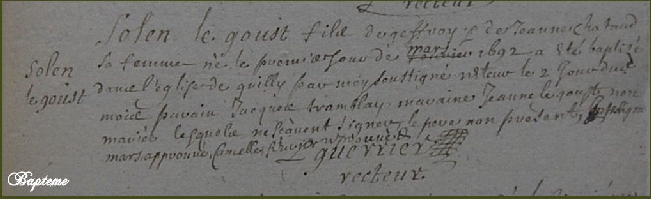 recteur
Solen le goust fils de geffroy et de Jeanne chataud
sa femme né le premier Jour de mars feuvrier 1692 a été baptisé
Solen
le goust
dans l'église de quilly par moy soussigné recteur le 2 Jour dudt
mois parain Jacques tramblay maraine Jeanne le goust non
mariés lesquels ne scavent signer le pere non present
mars approuvé
L guerrier
recteur.
Bapteme